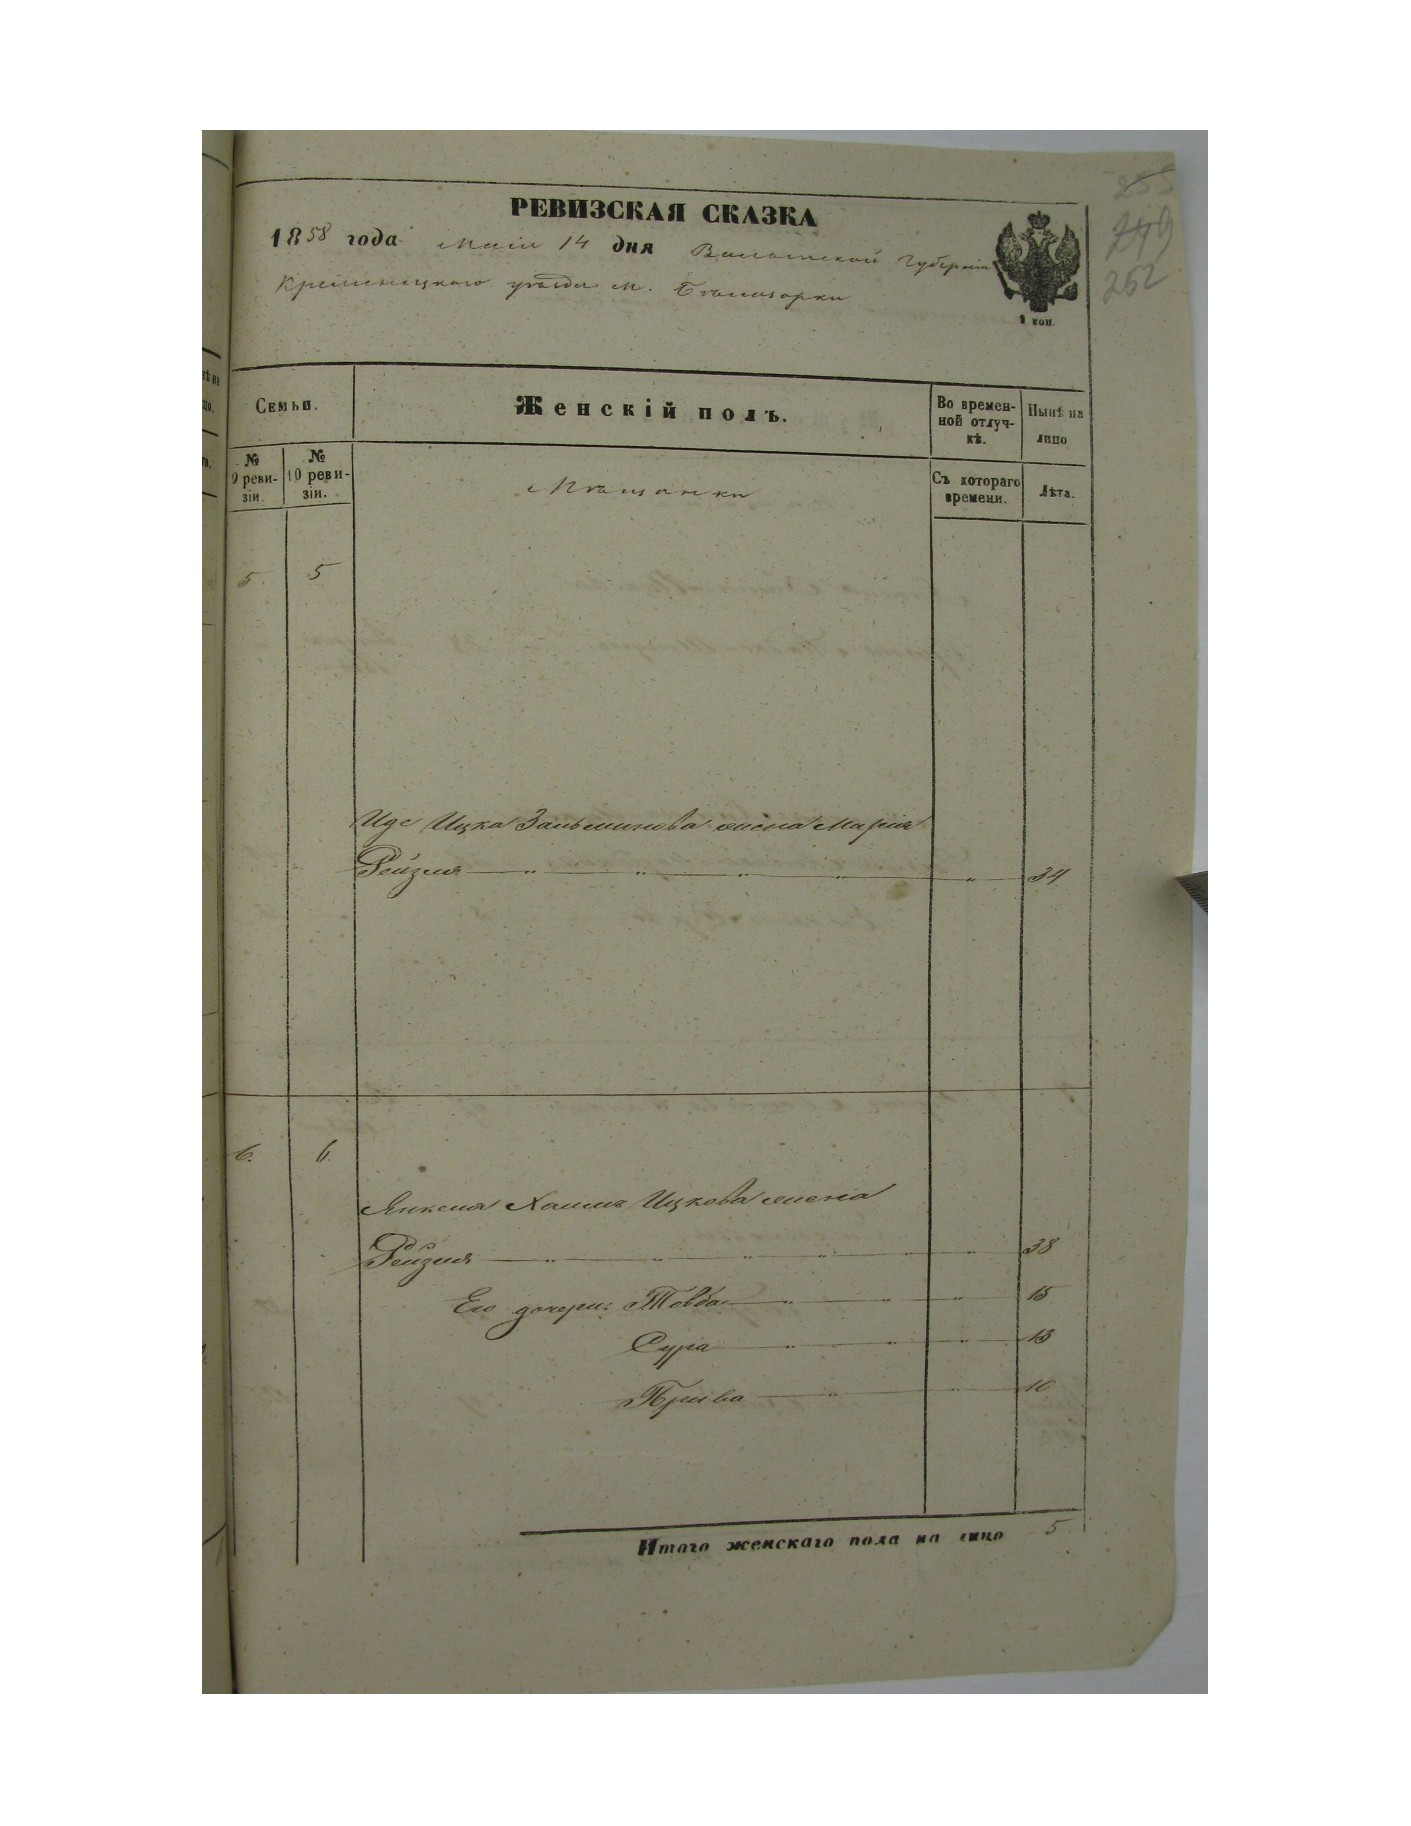 255
249
252
РЕВИЗСКАЯ СКАЗКА
1858 года Маія 14 дня Волынской Губерніи
Кременецкого уѣзда м. Бѣлозорки
1 коп.
Семьи.
Женскій полъ.
Во времен-
ной отлуч-
кѣ.
Нынѣ на
лицо
№
9 реви-
зіи.
№
10 реви-
зіи.
Съ котораго
времени.
Лѣта.
Мѣщанки
5 5
Ицка Зальманова жена Марія
Рейзля 34
6. 6.
Янкеля Хаима Ицкова жена
Рейзля 38
Его дочери: Товба 15
Сура 13
Прива 10
Итого женскаго пола на лицо 5